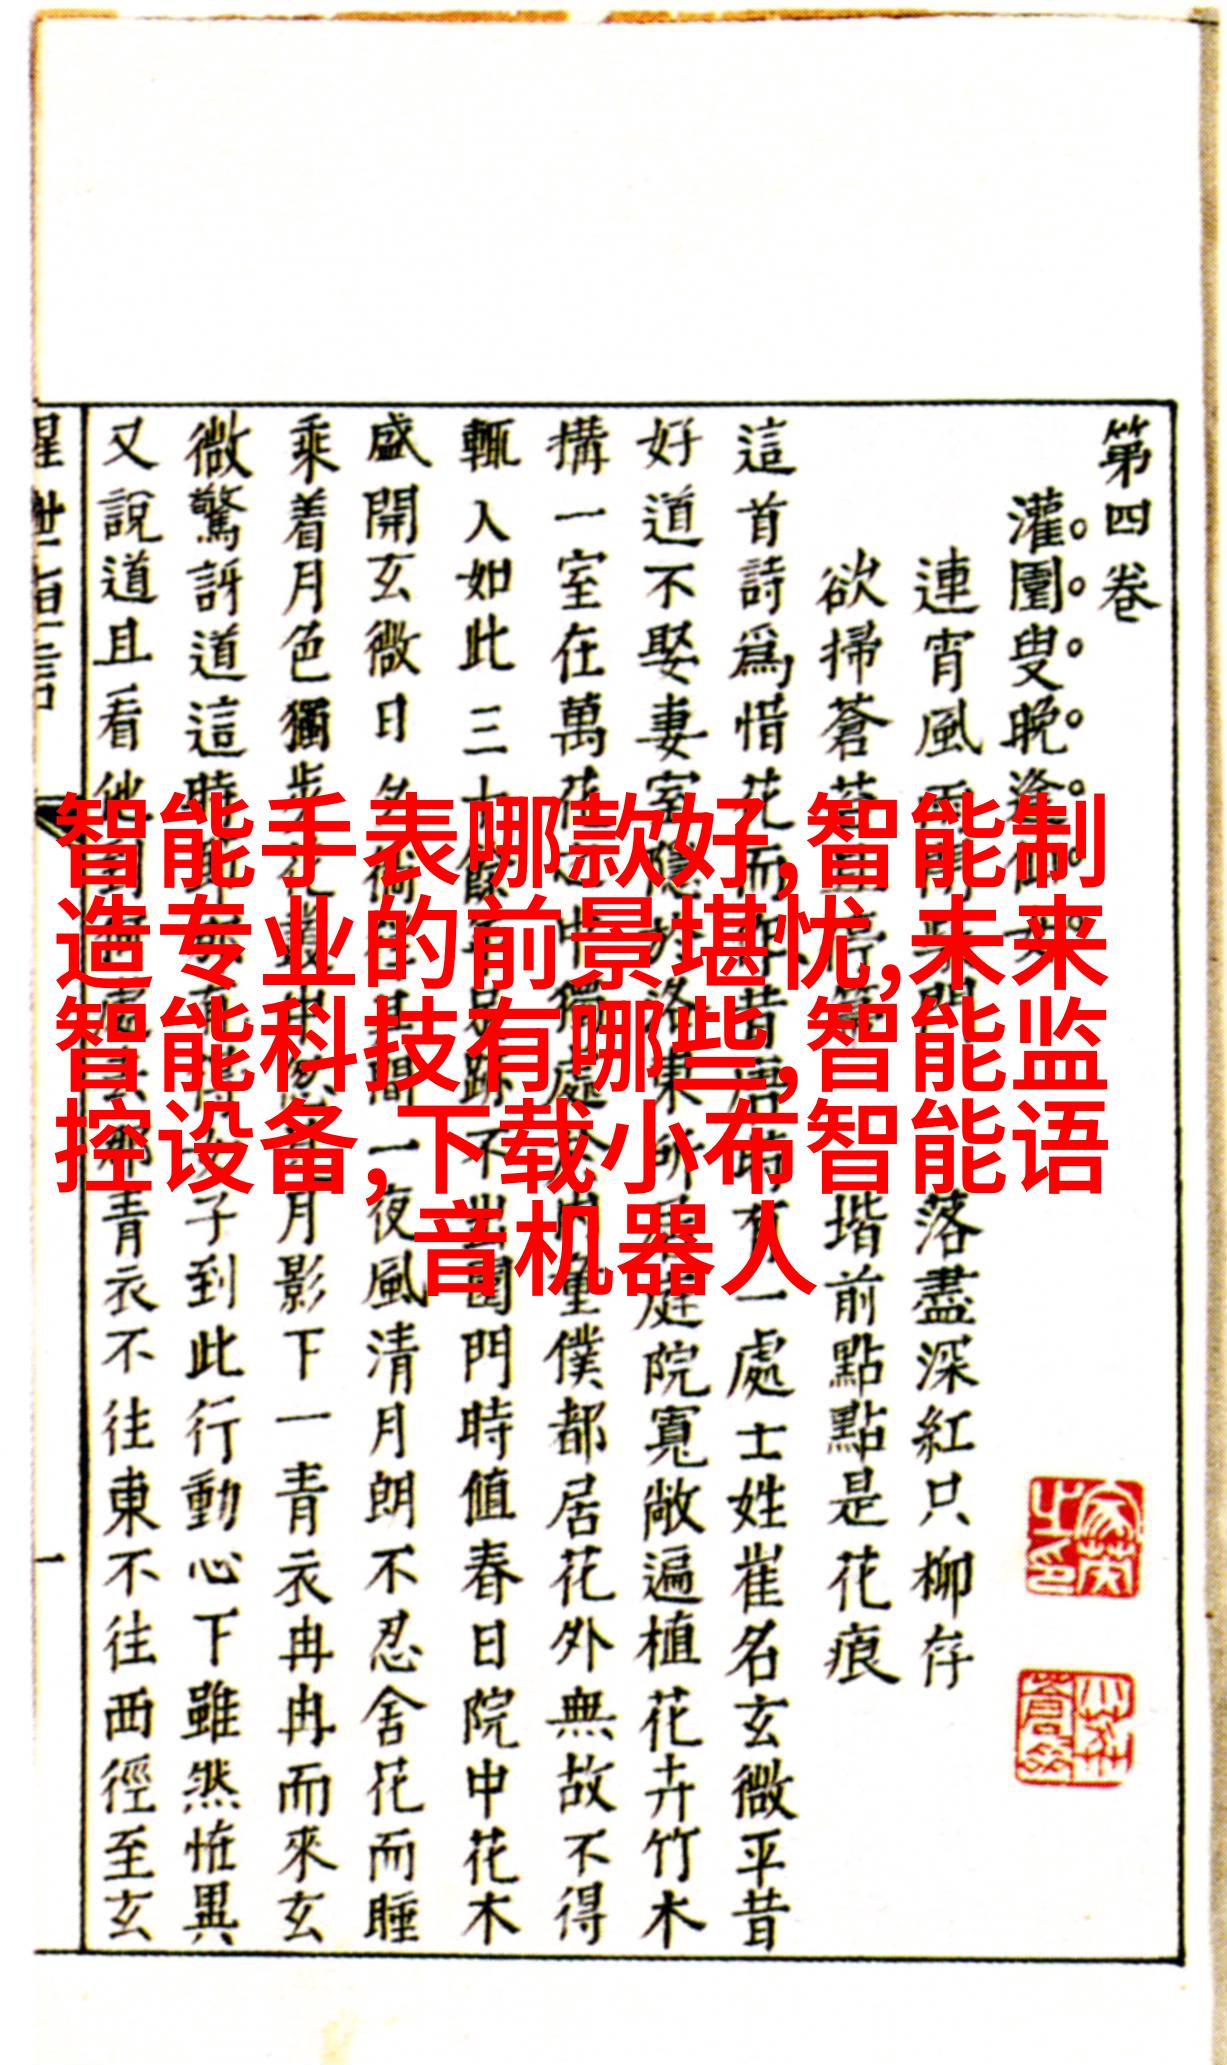 第四卷
灌園叟晚逢
連宵風 落盡深紅只柳存
欲掃蒼 堦前點點是花痕
這首詩爲惜花而昔唐有一處士姓崔名玄微平昔
好道不娶妻室隱洛東所庭院寬敞遍植花卉竹木
搆一室在萬花中獨處童僕都居花外無故不得
輒入如此三十餘足跡不出園門時值春日院中花木
盛開玄微日夕其間一夜風清月朗不忍舍花而睡
乘着月色獨步月影下一青衣冉冉而來玄
微驚訝道這時子到此行動心下雖然恠異
又說道且看他青衣不往東不往西徑至玄
一
智能手表哪款好,智能制
造专业的前景堪忧,未来
智能科技有哪些,智能监
控设备,下载小布智能语
音机器人